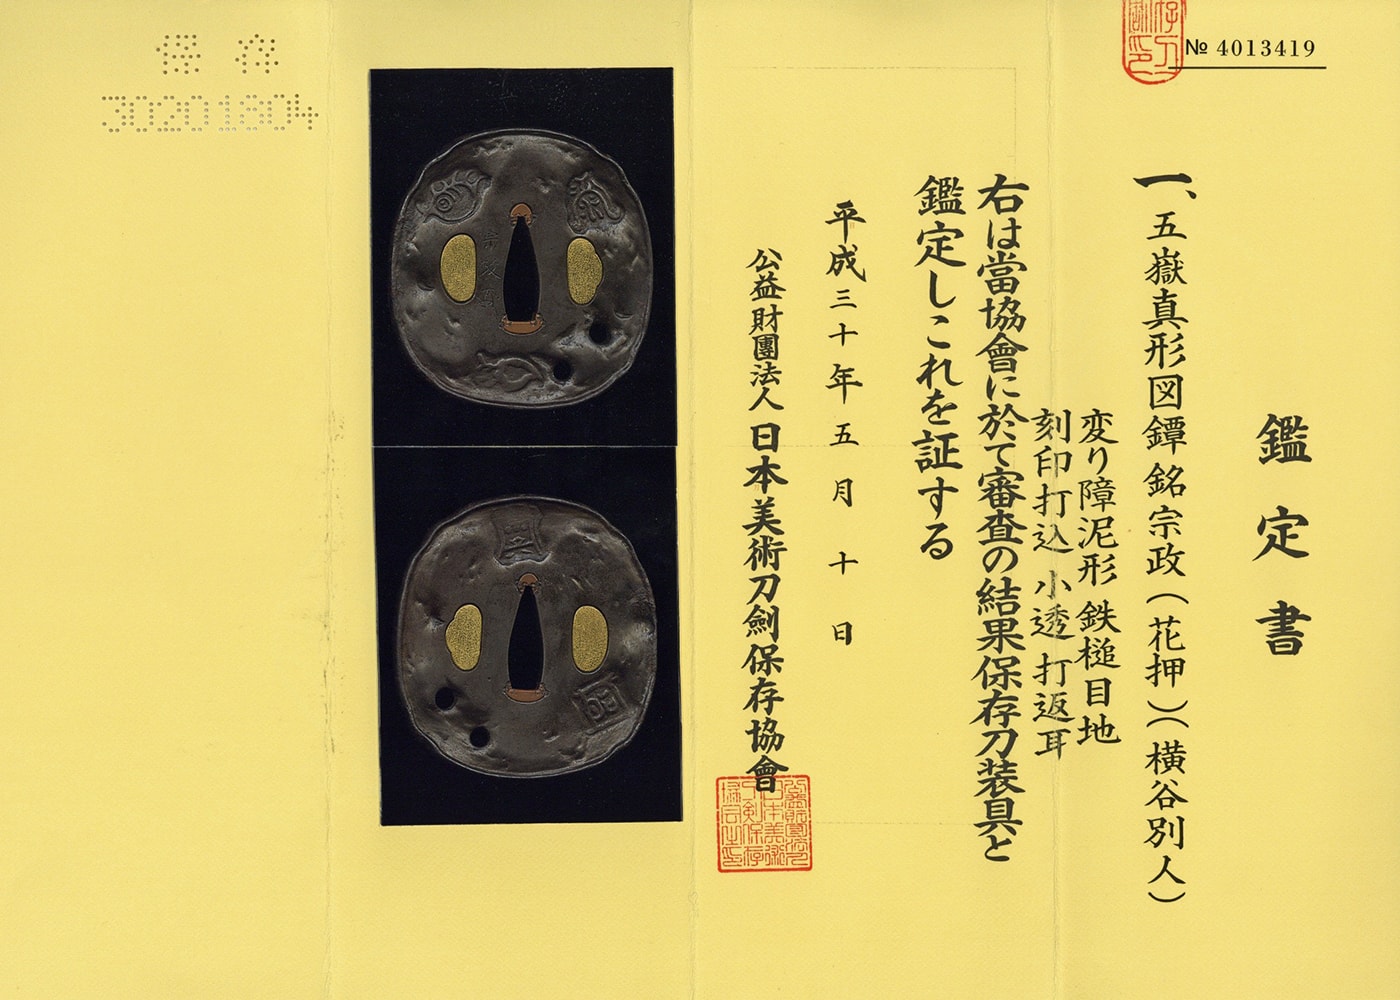 № 4013419
鑑定書
一、五嶽真形図鐔 銘 宗政（花押）（横谷別人）
変り障泥形 鉄槌目地
刻印打込 小透 打返耳
右は當協會に於て審査の結果保存刀装具と
鑑定しこれを証する
平成三十年五月十日
公益財團法人 日本美術刀劍保存協會
保存
30201804